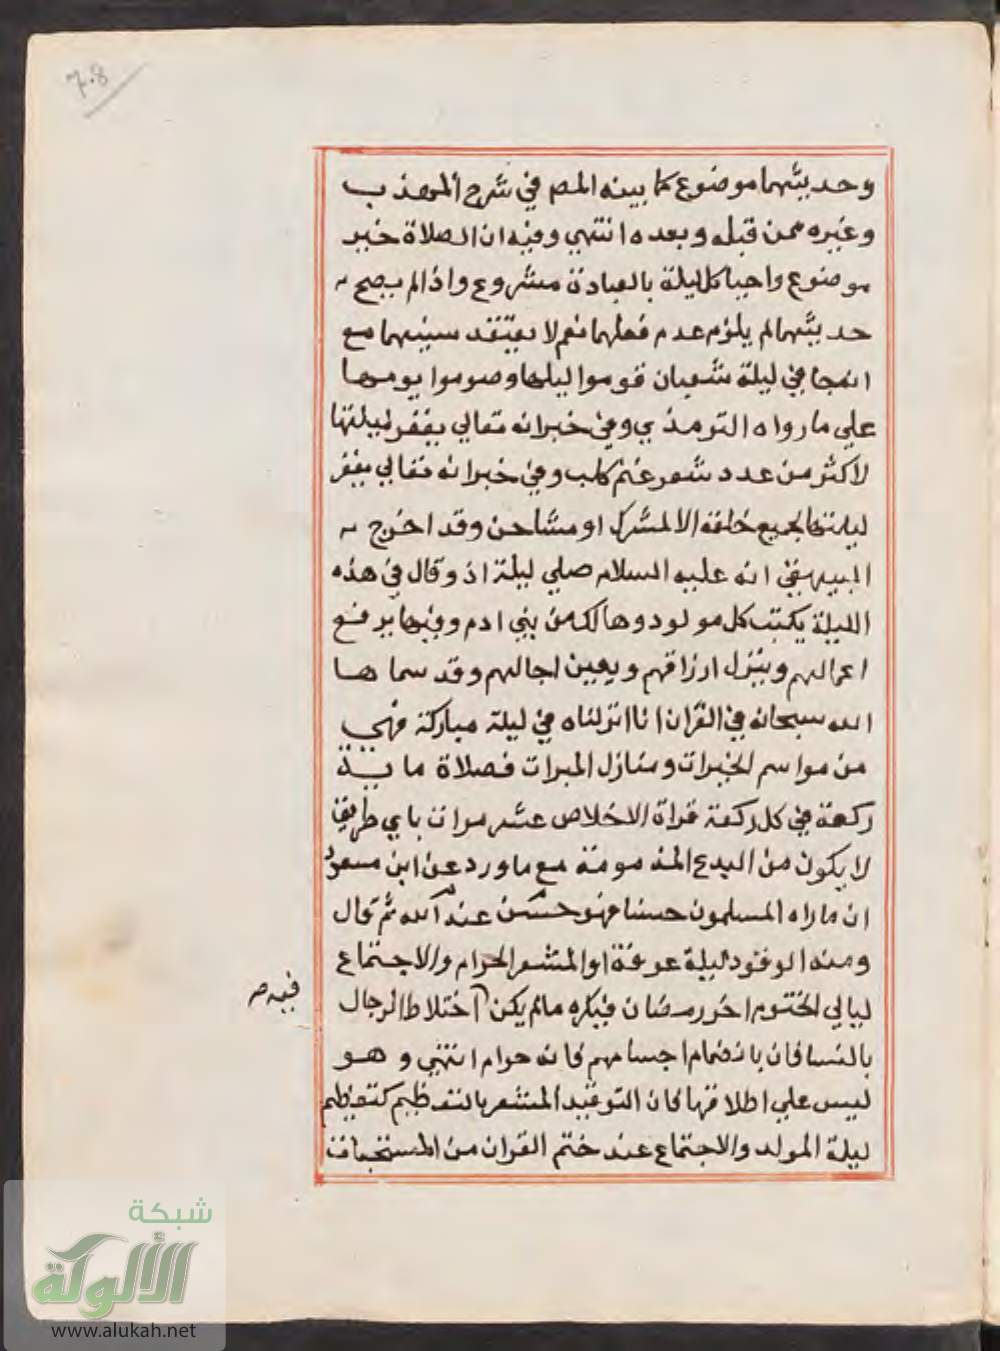 7.8
وحديثهما موضوع كما بينه المص في شرح المهذب
وغيره ممن قبله وبعده انتهي وفيه ان الصلاة خير
موضوع واحيا كل ليلة بالعبادة مشروع واذا لم يصح
حديثهما لم يلزم عدم فعلهما نعم لا يعتقد سنيتهما مع
انه جا في ليلة شعبان قوموا ليلها وصوموا يومها
علي ما رواه الترمذي وفي خبر انه تعالي يغفر ليلتها
لاكثر من عدد شعر غنم كلب وفي خبر انه تعالي يغفر
ليلتها لجميع خلقه الا لمشرك او مشاحن وقد اخرج
البيهقي انه عليه السلام صلي ليلة اذ وقال في هذه
الليلة يكتب كل مولود وهالك من بني ادم وفيها يرفع
اعمالهم وينزل ارزاقهم ويعين اجالهم وقد سماها
الله سبحانه في القران انا انزلناه في ليلة مباركة فهي
من مواسم الخيرات ومنازل المبرات فصلاة ماية
ركعة في كل ركعة قراة الاخلاص عشر مرات باي طريق
لا يكون من البدع المذمومة مع ما ورد عن ابن مسعود
ان ما راه المسلمون حسنا فهو حسن عند الله ثم قال
ومنه الوقود ليلة عرفة او المشعر الحرام والاجتماع
ليالي الختوم اخر رمضان فيكره ما لم يكن اختلاط الرجال
فيه ص
بالنسا فان بانضمام اجسامهم فانه حرام انتهي وهو
ليس علي اطلاقها فان التوقيد المشعر بالتعظيم كتعظيم
ليلة المولد والاجتماع عند ختم القران من المستحبات
شبكة
الألوكة
www.alukah.net